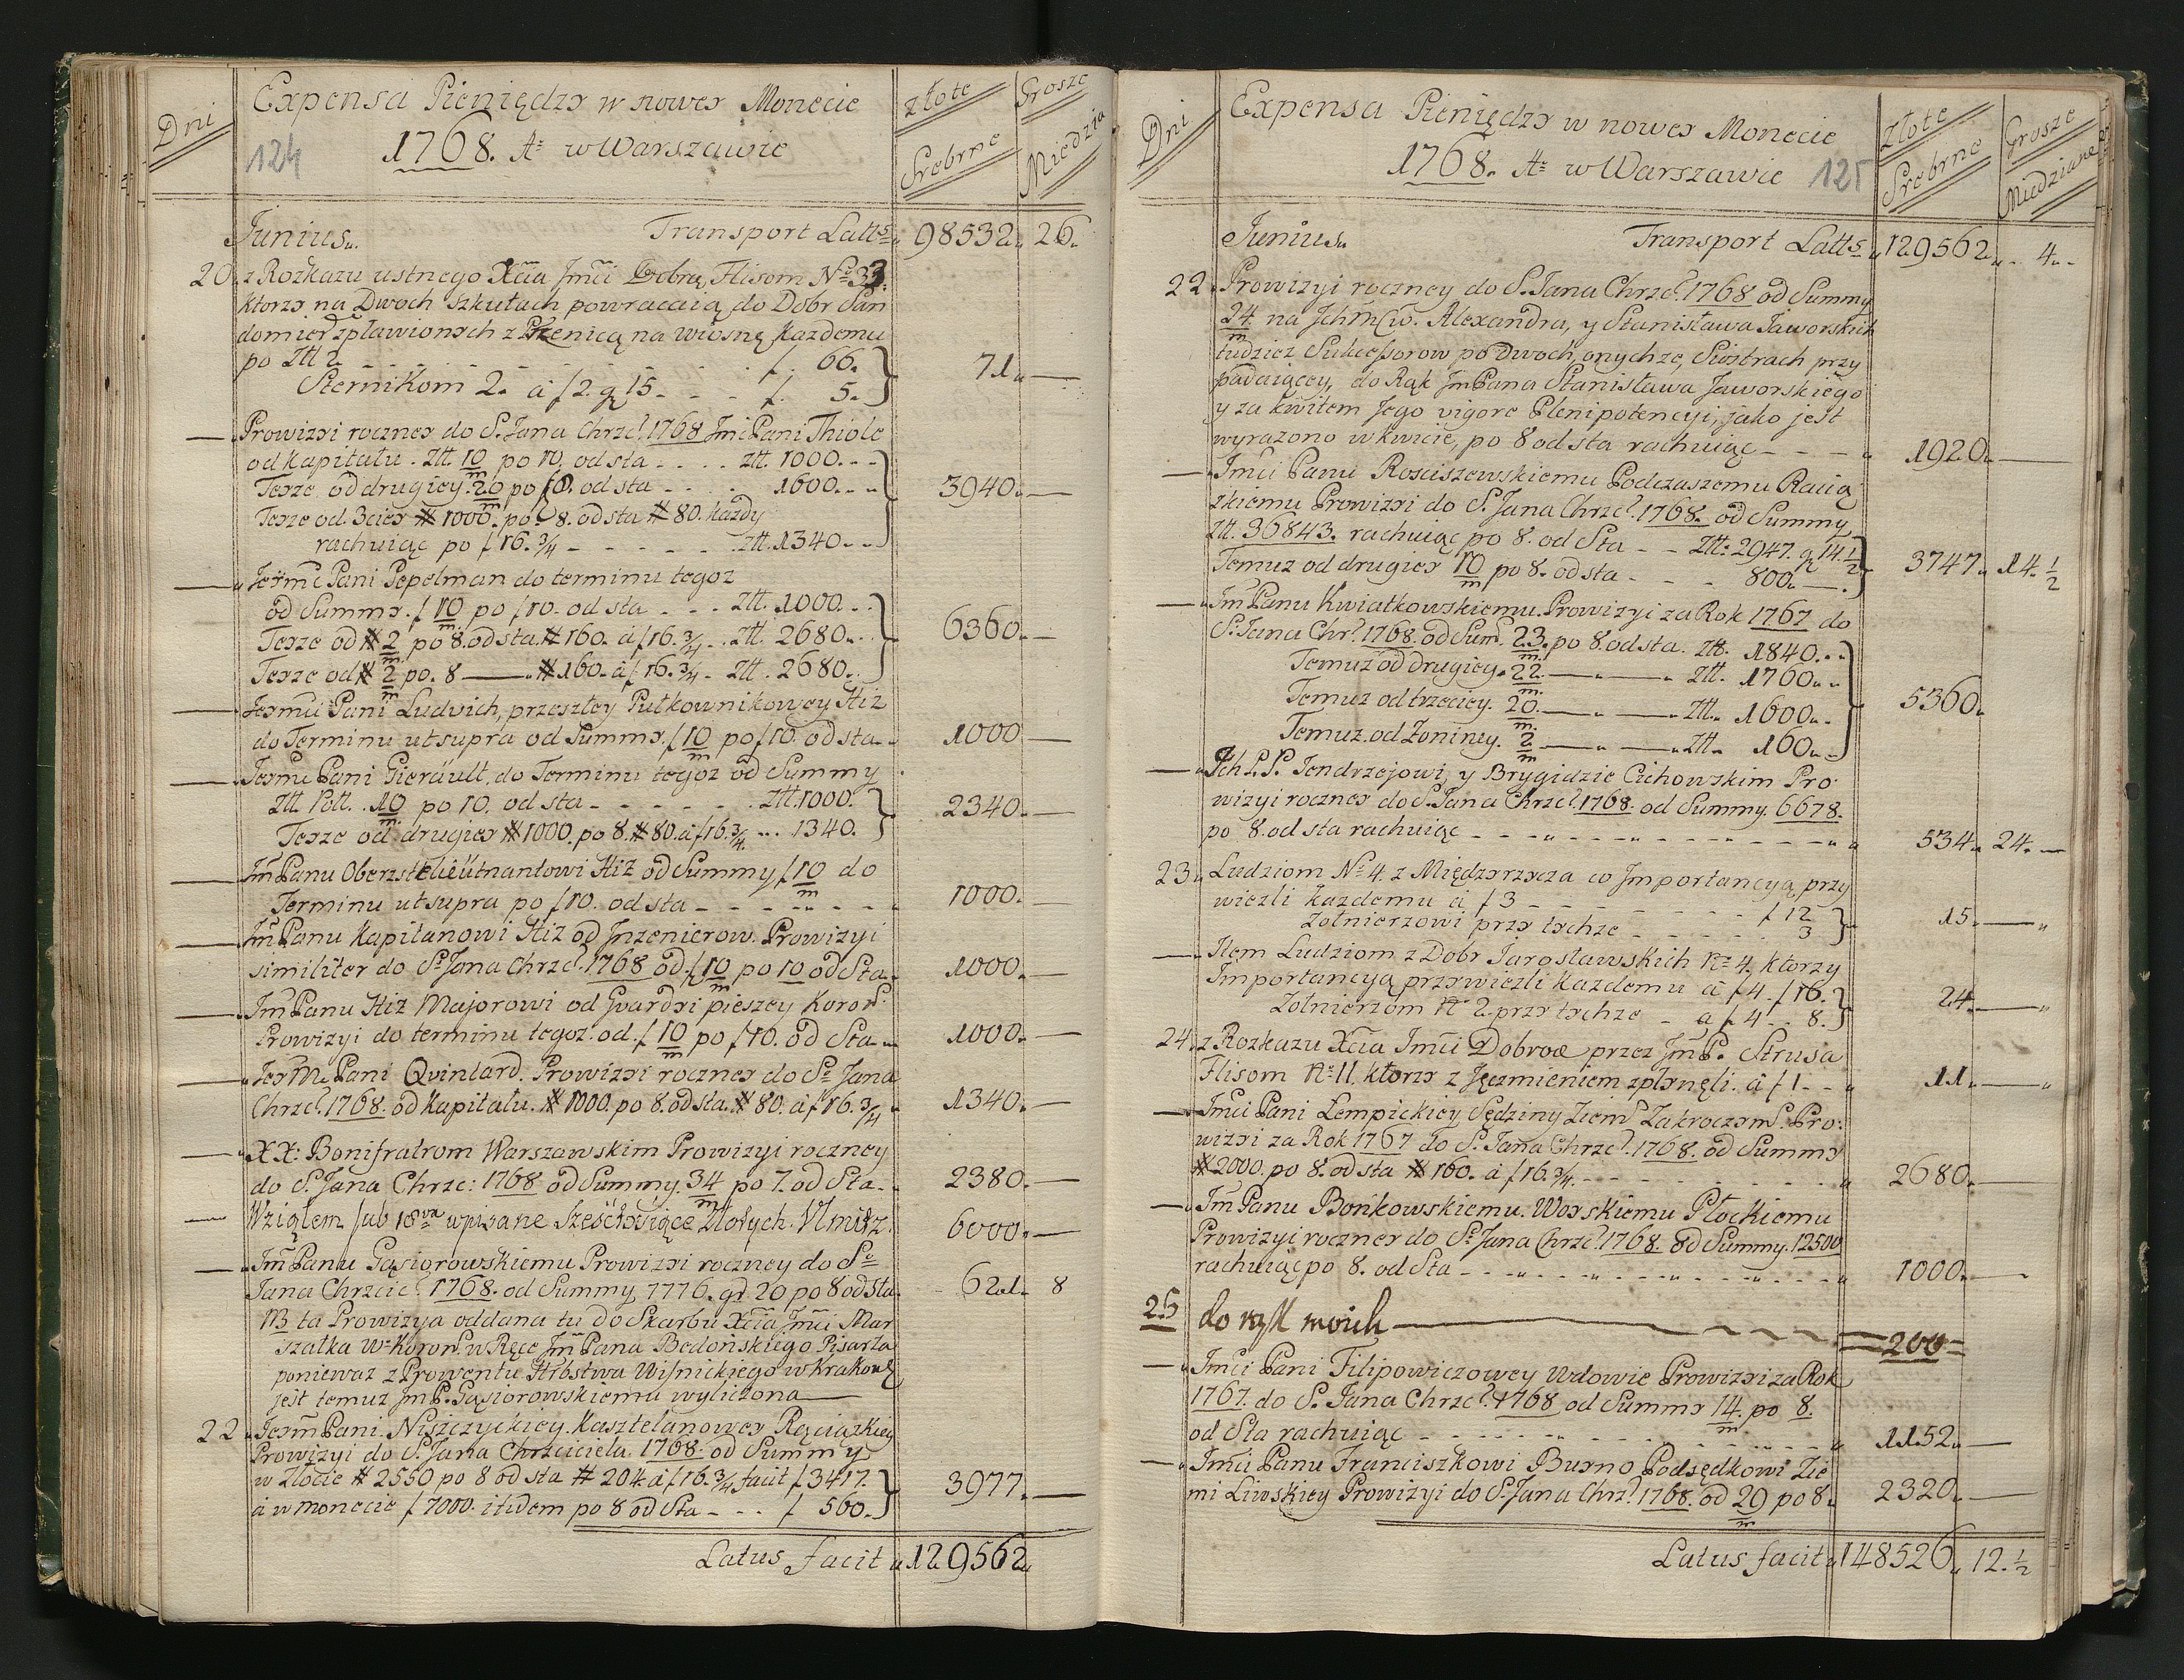 Dni
Expensa Pieniędzy w nowey Monecie
124
1768. Aº w Warszawie
złote Srebrne
Grosze Miedzia
Junius.. Transport Latts 98532. 26.
20. z Rozkazu ustnego Xcia Jmći Dobra, Flisom Nº 33.
ktorzy na Dwoch szkutach powracaią, do Dobr San
domier: zpławionych z Pszenicą na wiosnę każdemu
po Ztt 2 - - - - f. 66.
71. —
Sternikom 2. a f 2. g 15 - - - f. 5.
— Prowizyi roczney do S. Jana Chrzc. 1768 Jmći Pani Thiole
od Kapitału. Ztt. 10/m po 10. od sta - - - Ztt. 1000. - -
Teyze od drugiey. 20/m po f 8. od sta - - - 1600. - -
3940. —
Teyze od 3ciey # 1000. po 8. od sta # 80. każdy
rachuiąc po f 16. 3/4 - - - - - Ztt. 1340. - -
— Jeymć Pani Pepelman do terminu tegoz
od Summy. f 10/m po f 10. od sta - - - Ztt. 1000. - -
Teyze od # 2/m po 8. od sta. # 160. a f 16. 3/4 - - Ztt. 2680. - -
6360. —
Teyze od # 2/m po. 8 —— # 160. a f 16. 3/4 - Ztt. 2680.
— Jeymći Pani Ludvich, przeszłey Pułkownikowey Hiż
do Terminu ut supra od Summy. f 10/m po f 10. od sta - 1000 —
— Jeymći Pani Gierault, do Terminu tegoz od Summy
Ztt Pott. 10/m po 10. od sta - - - - - Ztt. 1000.
2340. —
Teyze od drugiey # 1000. po 8. # 80. a f 16. 3/4. - - 1340.
— Jm̃ Panu Oberzstelieütnantowi Hiż od Summy f 10/m do
Terminu ut supra po f 10. od sta - - - - - 1000. —
— Jm̃ Panu Kapitanowi Hiż od Jnzenierow. Prowizyi
similiter do S. Jana Chrzc. 1768 od. f 10/m po 10 od Sta - 1000. —
— Jm̃ Panu Hiż Majorowi od Gvardyi pieszey Koron.
Prowizyi do terminu tegoz. od. f 10/m po f 10. od Sta - 1000. —
— Jeym. Pani Qvintard. Prowizyi roczney do S. Jana
Chrzc. 1768. od Kapitału. # 1000. po 8. od sta. # 80. a f 16. 3/4 1340. —
— XX: Bonifratrom Warszawskim Prowizyi roczney
do S. Jana Chrzc: 1768 od Summy. 34/m po 7. od Sta - 2380. —
— Wziąłem sub 18va wpisane Sześćtysięce Złotych. Vlmitz. 6000. —
— Jm̃ Panu Gąsiorowskiemu Prowizyi roczney do S.
Jana Chrzcic. 1768. od Summy 7776. gr. 20 po 8 od sta. 621. 8
NB ta Prowizya oddana tu do Skarbu Xcia Jmći Mar
szałka W. Koron. w Ręce Jm̃ Pana Bedońskiego Pisarza
poniewaz z Prowentu Strostwa Wiśnickiego w Krakowie
jest temuz Jm̃ P. Gąsiorowskiemu wyliczona ——
22. Jeym̃ Pani. Niszczyckiey. Kasztelanowey Raciązkiey
Prowizyi do S. Jana Chrzciciela. 1768. od Summy
w Złocie # 2550 po 8 od sta # 204. a f 16. 3/4 facit f 3417.
3977. —
a w monecie f 7000. itidem po 8 od Sta - - - f 560.
Latus facit 129562.
Dni
Expensa Pieniędzy w nowey Monecie
1768. Aº w Warszawie 125
Złote Srebrne
Grosze Miedziane
Junius.. Transport Latts 129562. 4.
22. Prowizyi roczney do S. Jana Chrzc. 1768 od Summy
24/m na Jchmćiw. Alexandra, y Stanisława Jaworskich
tudziez Sukcessorow po Dwoch, onychze, Siostrach przy
padaiącey, do Rąk Jm̃ Pana Stanisława Jaworskiego
y za kwitem Jego vigore Plenipotencyi, jako jest
wyrazono w kwicie, po 8 od sta rachuiąc - - - 1920. —
— Jmći Panu Rosciszewskiemu Podczaszemu Racią
zkiemu Prowizyi do S. Jana Chrzc. 1768. od Summy
Ztt. 36843. rachuiąc po 8. od Sta - - Ztt. 2947. g 14 1/2
3747. 14. 1/2
Temuz od drugiey 10/m po 8. od sta - - - 800. —
— Jm̃ Panu Kwiatkowskiemu. Prowizyi za Rok 1767 do
S. Jana Chr. 1768. od Sum. 23/m. po 8. od sta. Ztt. 1840. - -
Temuz od drugiey. 22/m. —— —— Ztt. 1760. - -
5360.
Temuz od trzeciey. 20/m. —— —— Ztt. 1600. - -
Temuz. od Zoniney. 2/m —— —— Ztt. 160. - -
— Jch P. P. Jendrzejowi, y Brygidzie Cichowskim Pro
wizyi roczney do S. Jana Chrzc. 1768. od Summy. 6678.
po 8. od sta rachuiąc - - - - - - - 534. 24. —
23. Ludziom Nº 4. z Międzyrzycza co Jmportancyą przy
wiezli każdemu a f 3 - - - - - - f 12
15. —
Zołnierzowi przy tychże - - - - - 3
— Jtem Ludziom z Dobr Jarosławskich Nº 4. ktorzy
Jmportancyą przywiezli każdemu a f 4. f 16.
24. —
Zołnierzom Nº 2. przy tychże - a f 4 - - 8.
24. z Rozkazu Xcia Jmći Dobroã przez Jm̃ P. Strusa
Flisom Nº 11. ktorzy z Jęczmieniem zpłynęli. a f 1 - - 11. —
— Jmći Pani Lempickiey Sędziny Ziem. Zakroczym. Pro.
wizyi za Rok 1767 do S. Jana Chrzc. 1768. od Summy
# 2000. po 8. od sta # 160. a f 16. 3/4. - - - - - - 2680. —
— Jm̃ Panu Bońkowskiemu. Woyskiemu Płockiemu
Prowizyi roczney do S. Jana Chrzc. 1768. od Summy. 12500
rachuiąc po 8. od Sta - - - - - - - - 1000. —
25 do rąk moich —— 200
— Jmći Pani Filipowiczowey Wdowie Prowizyi za Rok
1767. do S. Jana Chrzc. 1768 od Summy 14/m. po 8.
od Sta rachuiąc - - - - - - - - 1152. —
— Jmći Panu Franciszkowi Burno Podsędkowi Zie
mi Liwskiey Prowizyi do S. Jana Chrz. 1768. od 29/m po 8. 2320. —
Latus facit 148526. 12. 1/2